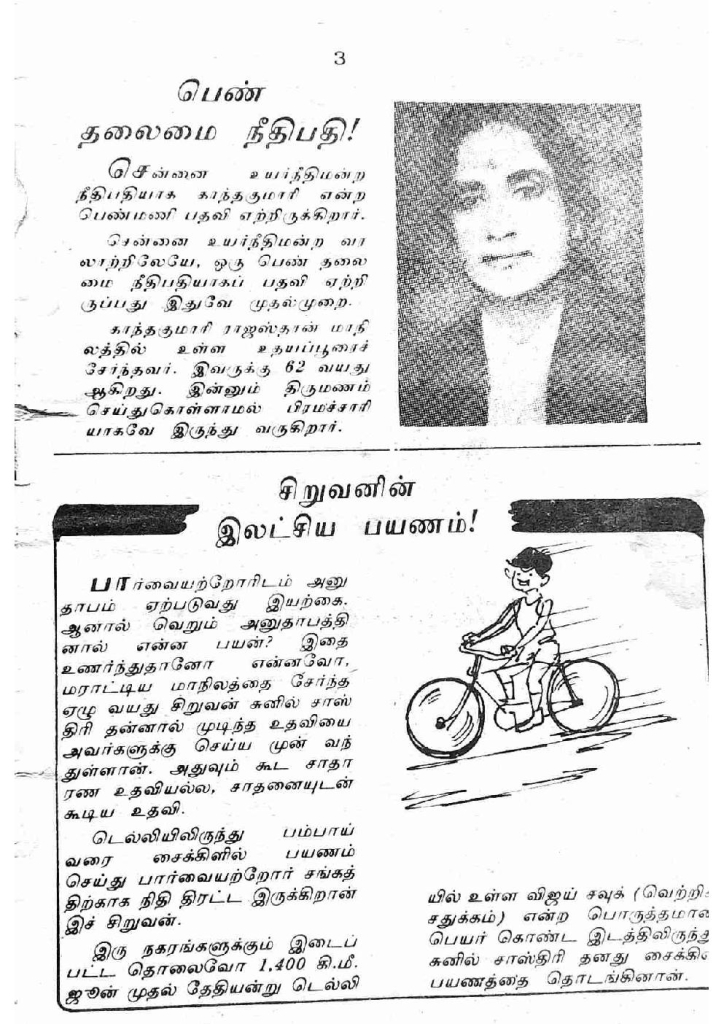 3
பெண்
தலைமை நீதிபதி!
சென்னை உயர்நீதிமன்ற
நீதிபதியாக காந்தகுமாரி என்ற
பெண்மணி பதவி ஏற்றிருக்கிறார்.
சென்னை உயர்நீதிமன்ற வர
லாற்றிலேயே, ஒரு பெண் தலை
மை நீதிபதியாகப் பதவி ஏற்றி
ருப்பது இதுவே முதல்முறை.
காந்தகுமாரி ராஜஸ்தான் மாநி
லத்தில் உள்ள உதயப்பூரைச்
சேர்ந்தவர். இவருக்கு 62 வயது
ஆகிறது. இன்னும் திருமணம்
செய்துகொள்ளாமல் பிரமச்சாரி
யாகவே இருந்து வருகிறார்.
சிறுவனின்
இலட்சிய பயணம்!
பார்வையற்றோரிடம் அனு
தாபம் ஏற்படுவது இயற்கை.
ஆனால் வெறும் அனுதாபத்தி
னால் என்ன பயன்? இதை
உணர்ந்துதானோ என்னவோ,
மராட்டிய மாநிலத்தை சேர்ந்த
ஏழு வயது சிறுவன் சுனில் சாஸ்
திரி தன்னால் முடிந்த உதவியை
அவர்களுக்கு செய்ய முன் வந்
துள்ளான். அதுவும் கூட சாதா
ரண உதவியல்ல, சாதனையுடன்
கூடிய உதவி.
டெல்லியிலிருந்து பம்பாய்
வரை சைக்கிளில் பயணம்
செய்து பார்வையற்றோர் சங்கத்
திற்காக நிதி திரட்ட இருக்கிறான்
இச் சிறுவன்.
இரு நகரங்களுக்கும் இடைப்
பட்ட தொலைவோ 1,400 கி.மீ.
ஜூன் முதல் தேதியன்று டெல்லி
யில் உள்ள விஜய் சவுக் (வெற்றிச்
சதுக்கம்) என்ற பொருத்தமான
பெயர் கொண்ட இடத்திலிருந்து
சுனில் சாஸ்திரி தனது சைக்கிள்
பயணத்தை தொடங்கினான்.